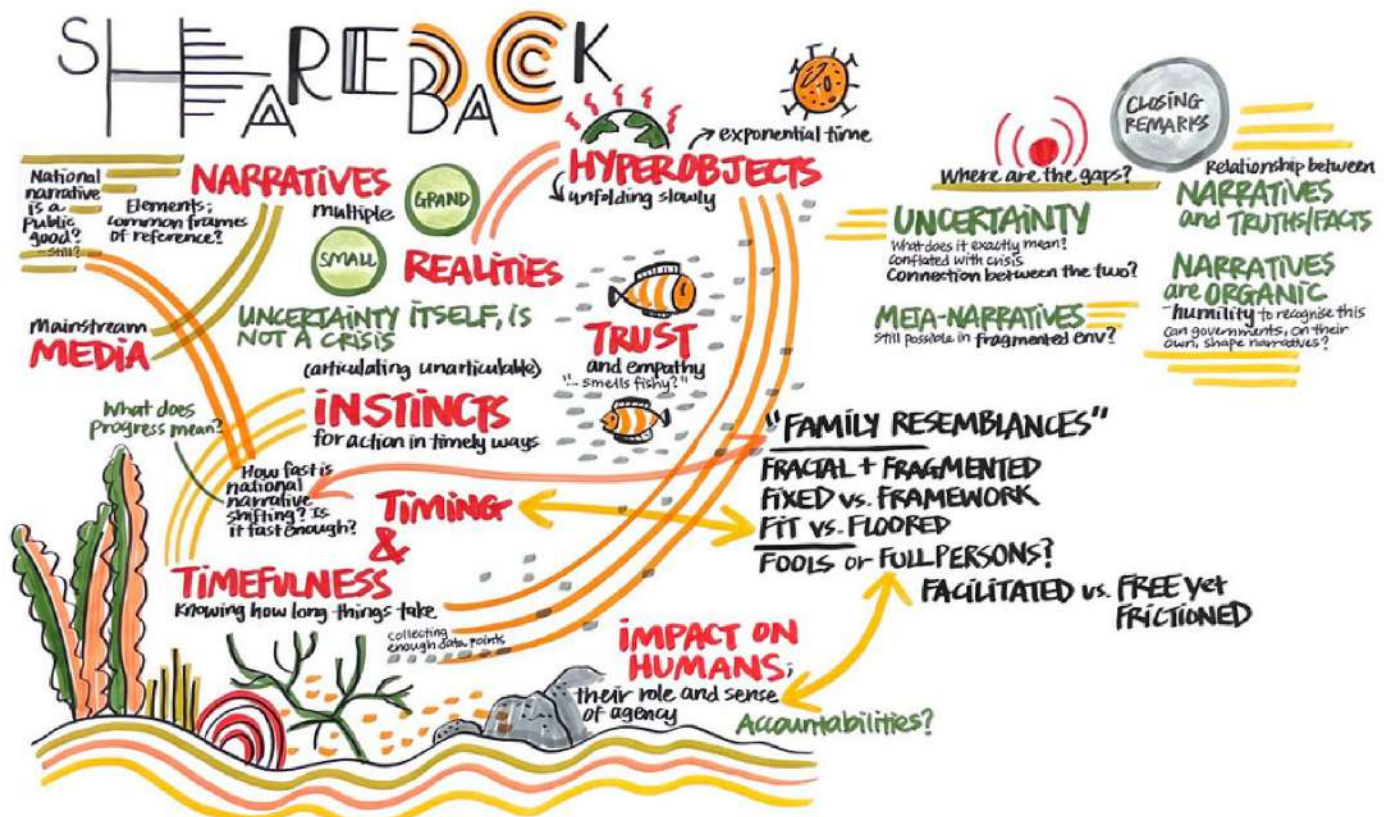 SHAREBACK
National
narrative
is a
Public
good?
- still?
Elements;
common frames
of reference?
NARRATIVES
multiple
GRAND
SMALL
REALITIES
HYPEROBJECTS
exponential time
unfolding slowly
Mainstream
MEDIA
UNCERTAINTY ITSELF, IS
NOT A CRISIS
(articulating unarticulable)
TRUST
and empathy
"... smells fishy?"
What does
Progress mean?
INSTINCTS
for action in timely ways
How fast is
national
narrative
shifting? Is
it fast enough?
TIMING
&
TIMEFULNESS
Knowing how long things take
collecting
enough data points
IMPACT ON
HUMANS;
their role and sense
of agency
Accountabilities?
"FAMILY RESEMBLANCES"
FRACTAL + FRAGMENTED
FIXED vs. FRAMEWORK
FIT vs. FLOORED
FOOLS or FULL PERSONS?
FACILITATED vs. FREE yet
FRICTIONED
CLOSING
REMARKS
Where are the gaps?
UNCERTAINTY
What does it exactly mean?
conflated with crisis
Connection between the two?
META-NARRATIVES
still possible in fragmented env?
Relationship between
NARRATIVES
and TRUTHS/FACTS
NARRATIVES
are ORGANIC
- humility to recognise this
can governments, on their
own, shape narratives?